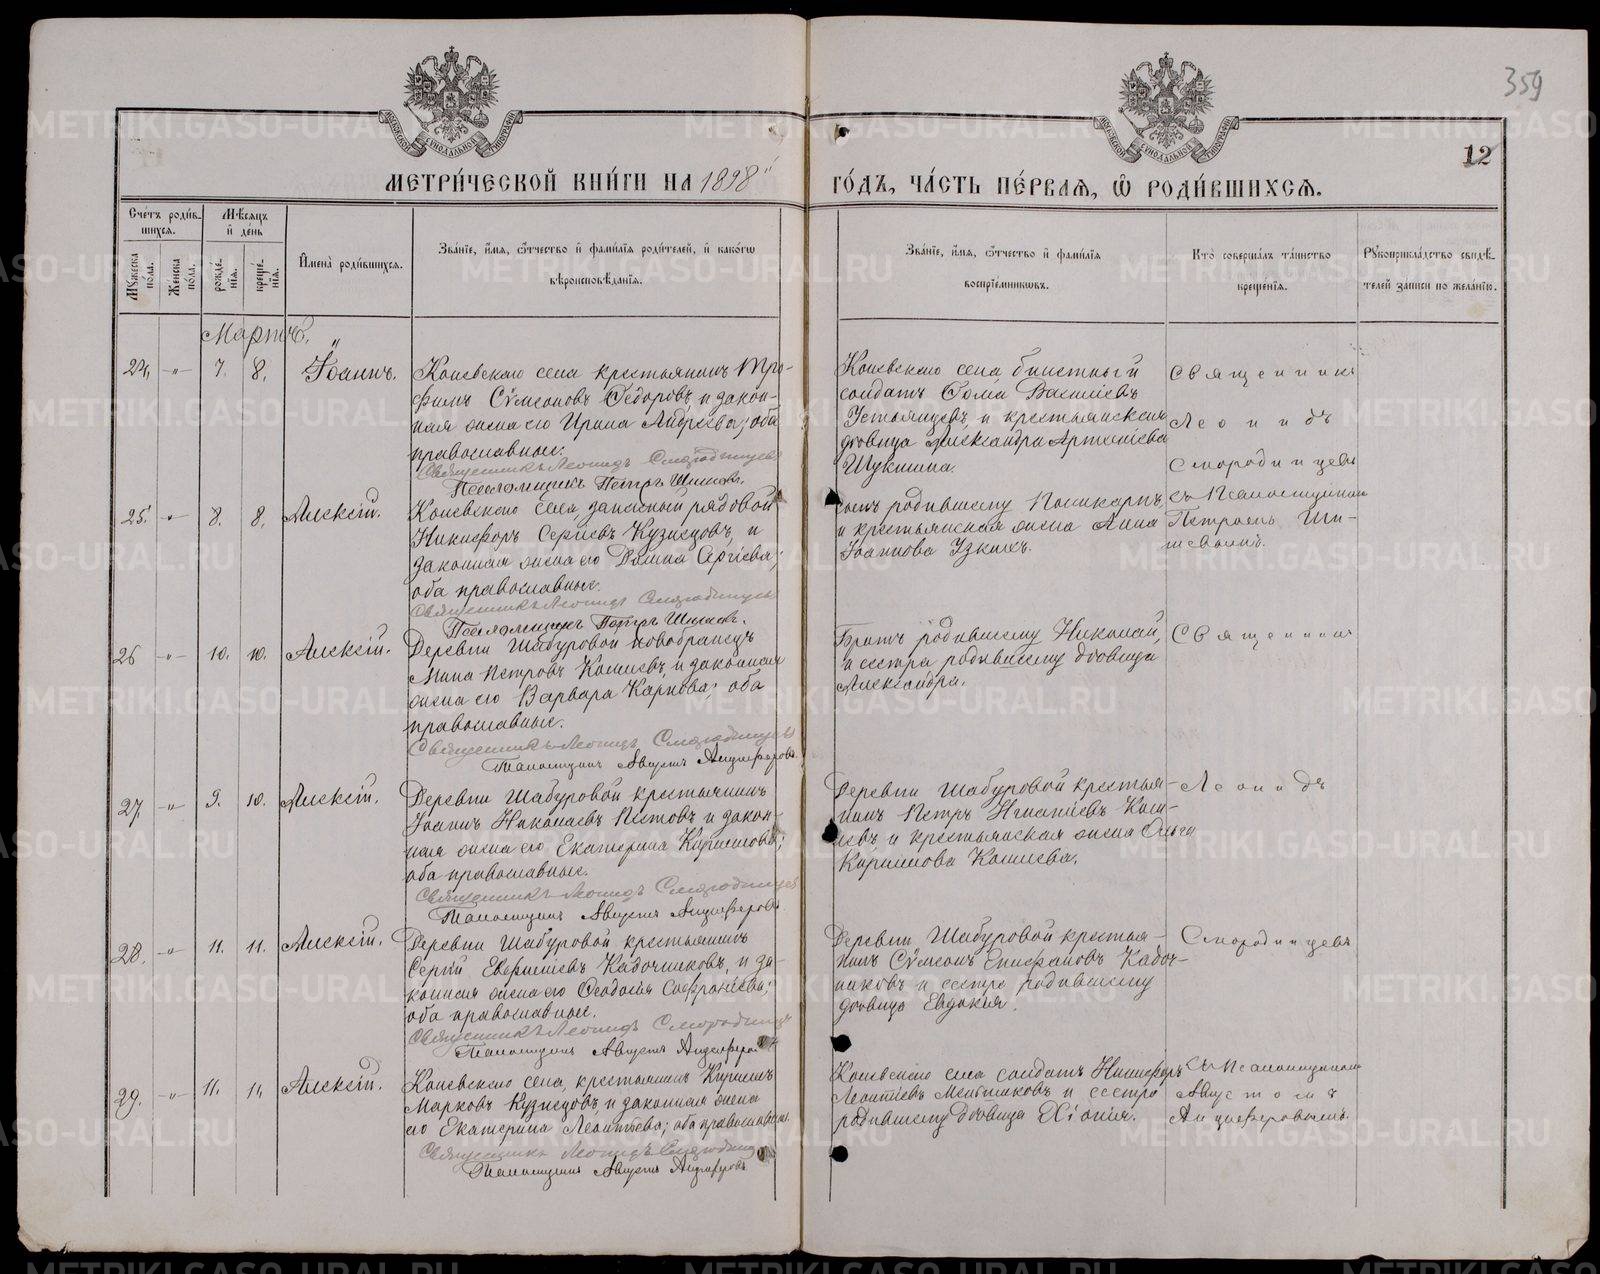 359
12
МЕТРИ́ЧЕСКОЙ КНИ́ГИ НА 1898
ГО́ДЪ, ЧА́СТЬ ПЕ́РВАЯ, Ѽ РОДИ́ВШИХСЯ.
Сче́тъ роди́вшихся.
Мѣ́сяцъ и де́нь
Имена̀ роди́вшихся.
Зва́ніе, и́мя, ѻ҆́тчество и фами́лія роди́телей, и како́гѡ вѣроисповѣ́данія.
Зва́ніе, и́мя, ѻ҆́тчество и фами́лія воспріе́мниковъ.
Кто̀ соверша́лъ та́инство креще́нія.
Рꙋкоприкла́дство свидѣ́телей за́писи по жела́нію.
Мꙋ́жеска по́ла.
Же́нска по́ла.
рожде́нія.
креще́нія.
Мартъ.
24. " 7. 8. Іоаннъ.
Коневскаго села крестьянинъ Тро-
фимъ Сѵмеоновъ Ѳедоровъ, и закон-
ная жена его Ирина Андреева; оба
православные.
Священникъ Леонидъ Смородинцевъ
Псаломщикъ Петръ Шишовъ.
Коневскаго села билетный
солдатъ Ѳома Васильевъ
Устьянцевъ, и крестьянская
вдовица Александра Артемьева
Щукина.
Священникъ
Леонидъ
Смородинцевъ
съ Псаломщикомъ
Петромъ Ши-
шевымъ.
25. " 8. 8. Алексій.
Коневскаго села, запасный рядовой
Никифоръ Сергіевъ Кузнецовъ, и
законная жена его Домна Сергіева;
оба православные.
Священникъ Леонидъ Смородинцевъ
Псаломщикъ Петръ Шишовъ.
сынъ родившему Поликарпъ,
и крестьянская жена Анна
Іоаннова Узкихъ.
26 " 10. 10. Алексій.
Деревни Шабуровой новобранецъ
Мина Петровъ Кошелевъ, и законная
жена его Варвара Карпова; оба
православные.
Священникъ Леонидъ Смородинцевъ
Псаломщикъ Августъ Анциферовъ
Братъ родившему Николай,
и сестра родившему вдовица
Александра.
Священникъ
27. " 9. 10. Алексій.
Деревни Шабуровой крестьянинъ
Іоаннъ Николаевъ Пѣтовъ и закон-
ная жена его Екатерина Кириллова;
оба православные.
Священникъ Леонидъ Смородинцевъ
Псаломщикъ Августъ Анциферовъ
Деревни Шабуровой крестья-
нинъ Петръ Игнатіевъ Коше-
левъ и крестьянская жена Ольга
Кириллова Кошелева.
Леонидъ
28. " 11. 11. Алексій.
Деревни Шабуровой крестьянинъ
Сергій Евфиміевъ Кадочниковъ, и за-
конная жена его Ѳеодосія Софроніева;
оба православные.
Священникъ Леонидъ Смородинцевъ
Псаломщикъ Августъ Анциферовъ
Деревни Шабуровой крестья-
нинъ Сѵмеонъ Епифановъ Кадоч-
никовъ и сестра родившему
вдовица Евдокія.
Смородинцевъ
29. " 11. 11. Алексій.
Коневскаго села, крестьянинъ Кириллъ
Марковъ Кузнецовъ, и законная жена
его Екатерина Леонтьева; оба православные.
Священникъ Леонидъ Смородинцевъ
Псаломщикъ Августъ Анциферовъ
Коневскаго села солдатъ Никифоръ
Леонтіевъ Мельниковъ и сестра
родившему вдовица Хіонія.
съ Псаломщикомъ
Августомъ
Анциферовымъ.
METRIKI.GASO-URAL.RU